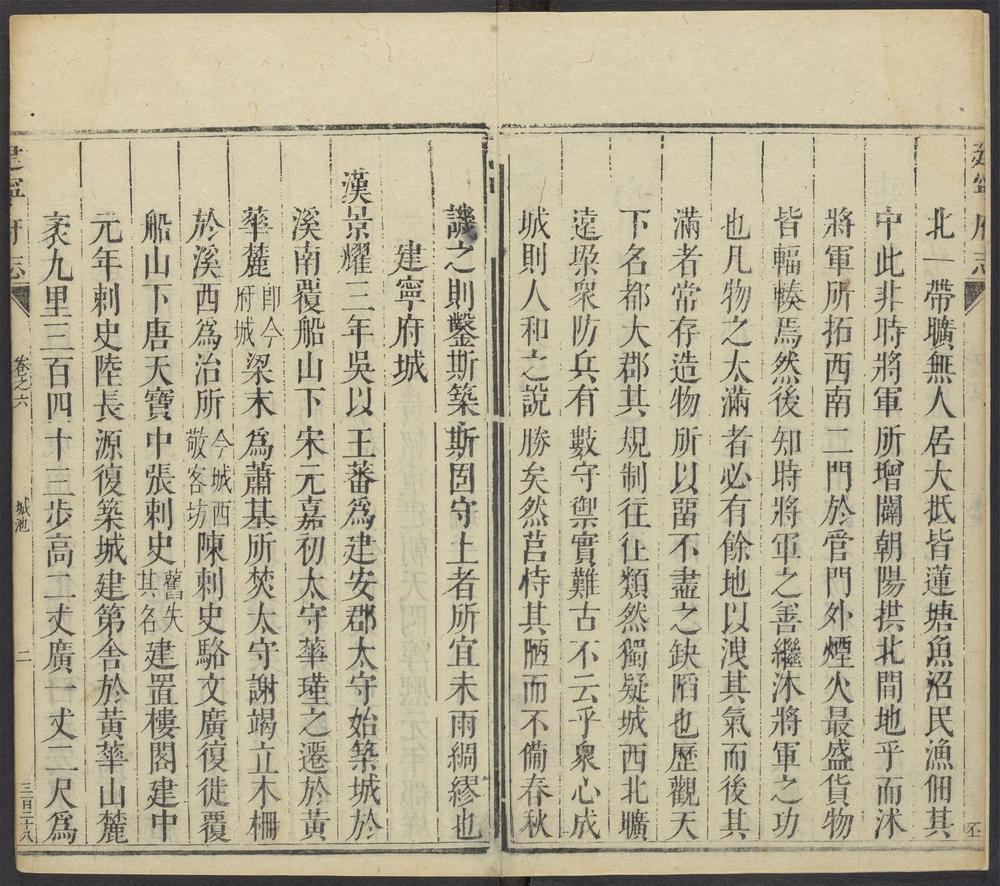 建寧府志
北一帶曠無人居大抵皆蓮塘魚沼民漁佃其
中此非時將軍所增闢朝陽拱北間地乎而沐
將軍所拓西南二門於官門外煙火最盛貨物
皆輻輳焉然後知時將軍之善繼沐將軍之功
也凡物之太滿者必有餘地以洩其氣而後其
滿者常存造物所以畱不盡之缺陷也歷觀天
下名都大郡其規制往往類然獨疑城西北曠
遠跺衆防兵有數守禦實難古不云乎衆心成
城則人和之說勝矣然莒恃其陋而不僃春秋
譏之則鑿斯築斯固守土者所宜未雨綢繆也
建寧府城
漢景耀三年吳以王蕃爲建安郡太守始築城於
溪南覆船山下宋元嘉初太守華瑾之遷於黃
華麓卽今府城梁末爲蕭基所焚太守謝竭立木柵
於溪西爲治所今城西敬客坊陳刺史駱文廣復徙覆
船山下唐天寶中張刺史舊失其名建置樓閣建中
元年刺史陸長源復築城建第舍於黃華山麓
袤九里三百四十三步高二丈廣一丈二尺爲
建寧府志
卷之六
城池
二
三百三十八